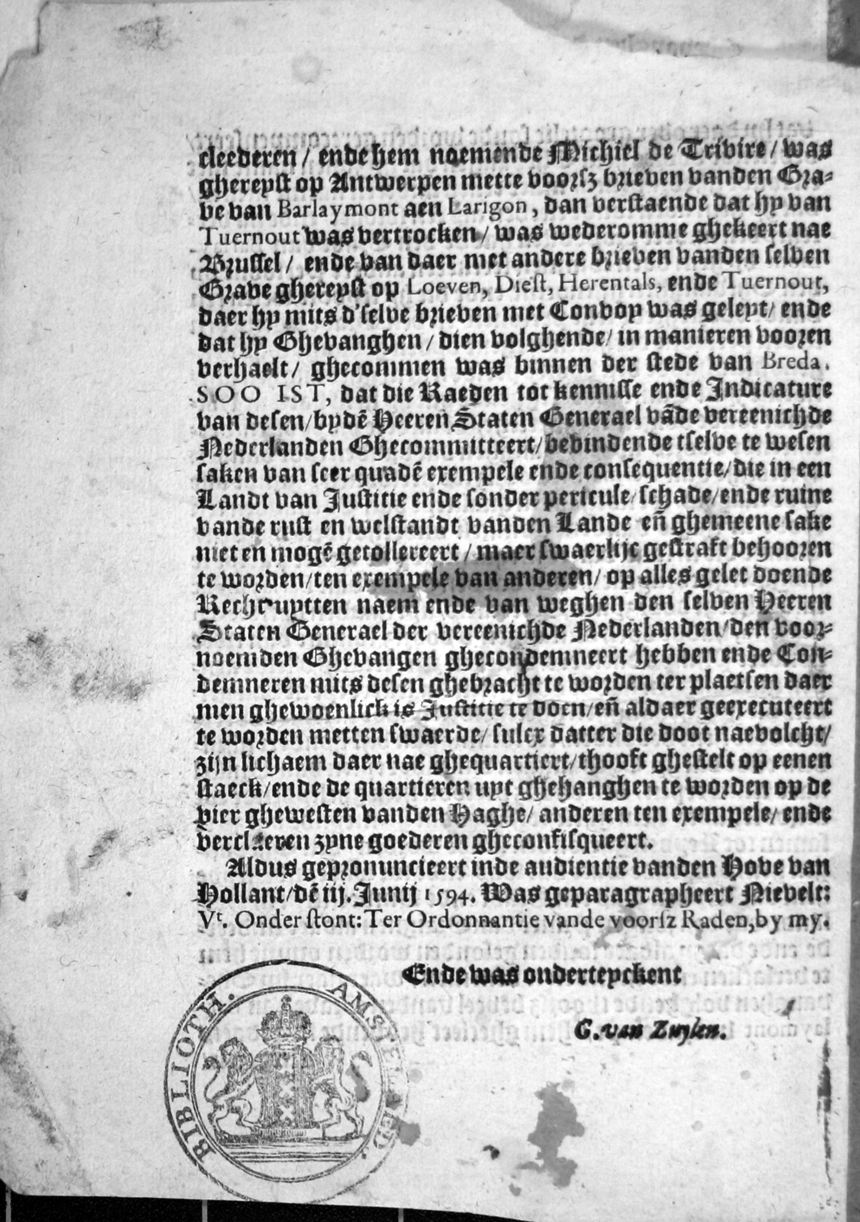 cleederen / ende hem noemende Michiel de Trivire / was
ghereyst op Antwerpen mette voorsz brieven vanden Gra-
ve van Barlaymont aen Larigon, dan verstaende dat hy van
Tuernout was vertrocken / was wederomme ghekeert nae
Brussel / ende van daer met andere brieven vanden selven
Grave ghereyst op Loeven, Diest, Herentals, ende Tuernout,
daer hy mits d'selve brieven met Convoy was geleyt / ende
dat hy Ghevanghen / dien volghende / in manieren vooren
verhaelt / ghecommen was binnen der stede van Breda.
SOO IST, dat die Raeden tot kennisse ende Indicature
van desen / bydē Heeren Staten Generael vāde vereenichde
Nederlanden Ghecommitteert / bevindende tselve te wesen
saken van seer quadē exempele ende consequentie / die in een
Landt van Justitie ende sonder pericule / schade / ende ruine
vande rust en welstandt vanden Lande eñ ghemeene sake
niet en mogē getollereert / maer swaerlijc gestraft behooren
te worden / ten exempele van anderen / op alles gelet doende
Recht uytten naem ende van weghen den selven Heeren
Staten Generael der vereenichde Nederlanden / den voor-
noemden Ghevangen ghecondemneert hebben ende Con-
demneren mits desen ghebracht te worden ter plaetsen daer
men ghewoenlick is Justitie te doen / eñ aldaer geexecuteert
te worden metten swaerde / sulcx datter die doot naevolcht /
zijn lichaem daer nae ghequartiert / thooft ghestelt op eenen
staeck / ende de quartieren uyt ghehanghen te worden op de
vier ghewesten vanden Haghe / anderen ten exempele / ende
verclaeren zyne goederen gheconfisqueert.
Aldus gepronuncieert inde audientie vanden Hove van
Hollant / dē iij. Junij 1594. Was geparagrapheert Nievelt:
Vt. Onder stont: Ter Ordonnantie vande voorsz Raden, by my.
Ende was onderteyckent
C. van Zuylen.
BIBLIOTH. AMSTELAED.